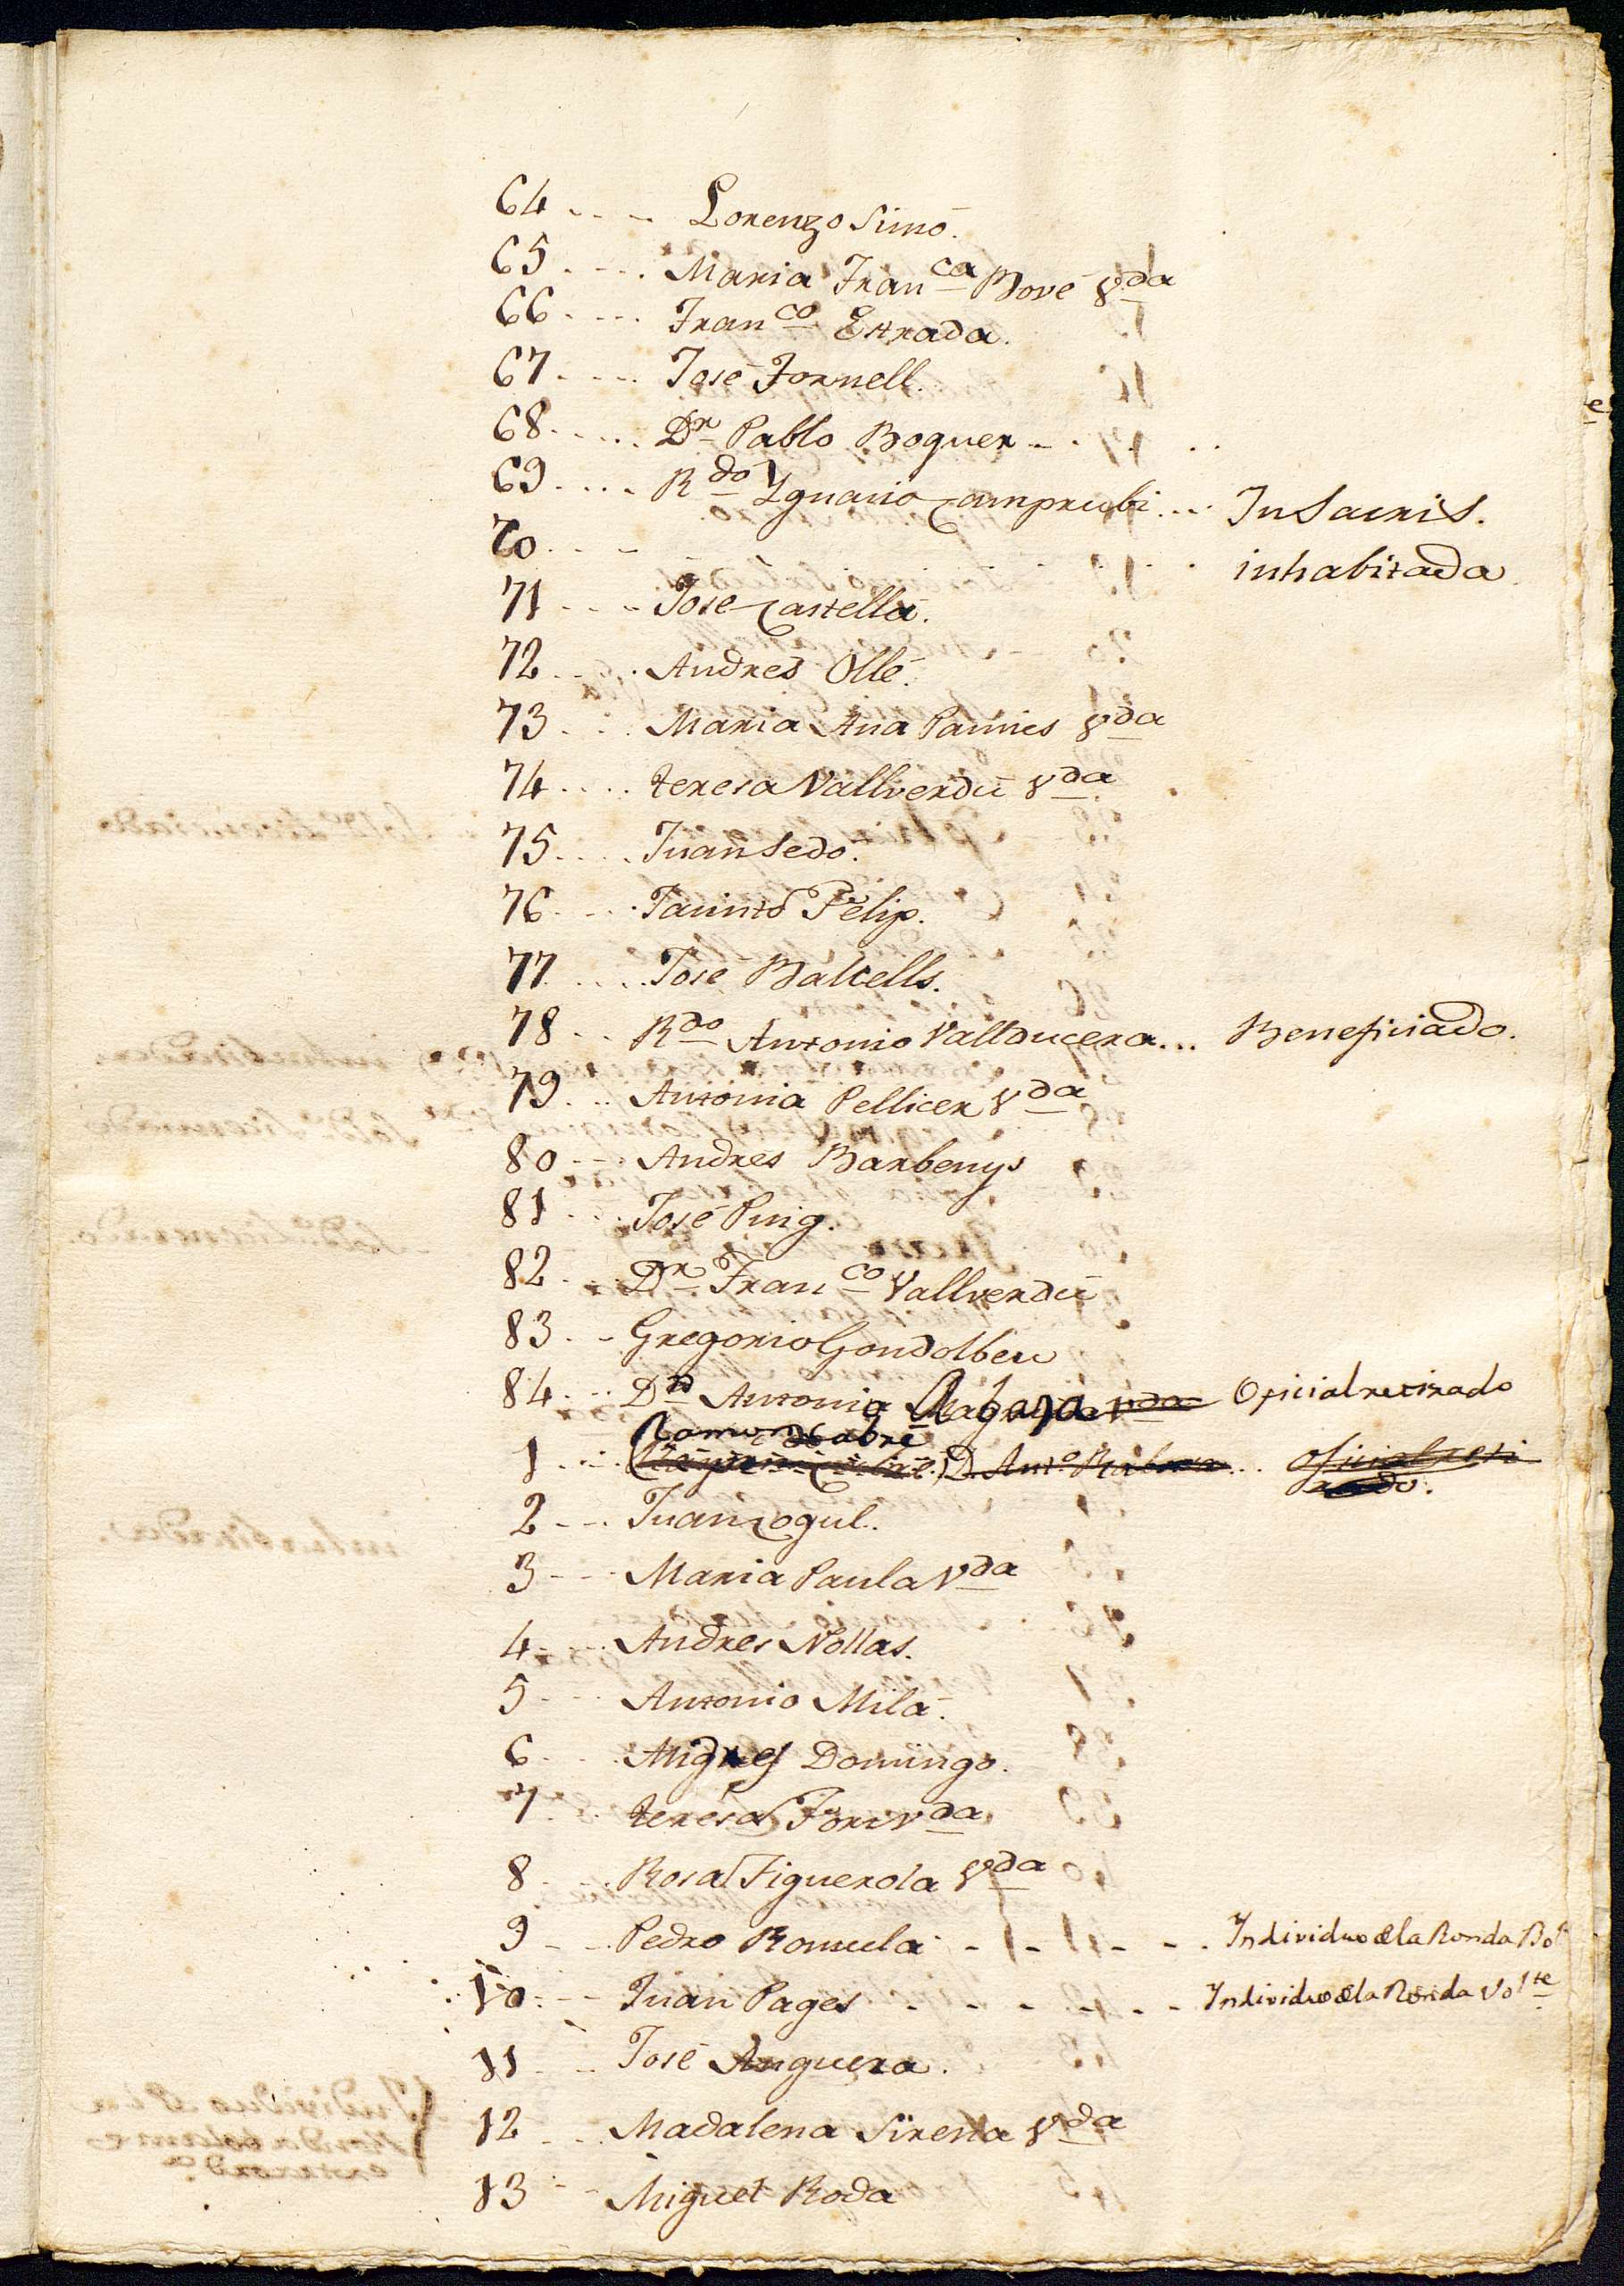 64 . . . . Lorenzo Simó.
65 . . . . Maria Fran^ca Bové V^da
66 . . . . Fran^co Estrada.
67 . . . . José Fornell.
68 . . . . D^r Pablo Boguer . . .
69 . . . . R^do Ygnacio Camprubi . . . In Sacris.
70 . . . . inhabitada.
71 . . . . José Castellá.
72 . . . . Andres Ollé.
73 . . . Maria Ana Pamies V^da
74 . . . . teresa Vallverdú V^da
75 . . . . Juan Sedó.
76 . . . . Jacinto Pelip.
77 . . . . José Balcells.
78 . . R^do Antonio Vallducera . . . Beneficiado.
79 . . . Antonia Pellicer V^da
80 . . . Andres Barbenys
81 . . . José Puig.
82 . . . D^r Fran^co Vallverdú
83 . . Gregorio Gondolbeu
84 . . . D^n Antonio Oficial retirado
Ramon
1 . . . D. Ant^o oficial reti
rado.
2 . . . Juan Cogul.
3 . . . Maria Paula V^da
4 . . . Andres Nollas.
5 . . . Antonio Milá.
6 . . . Miguel Domingo.
7 . . teresa Fort V^da
8 . . . Rosa Figuerola V^da
9 . . . Pedro Romeula . . . . Individuo de la Ronda Vol
10 . . . Juan Pages . . . . . . Individuo de la Ronda Vol^te
11 . . . José Anguera.
12 . . . Madalena V^da
13 . . . Miguel Roda